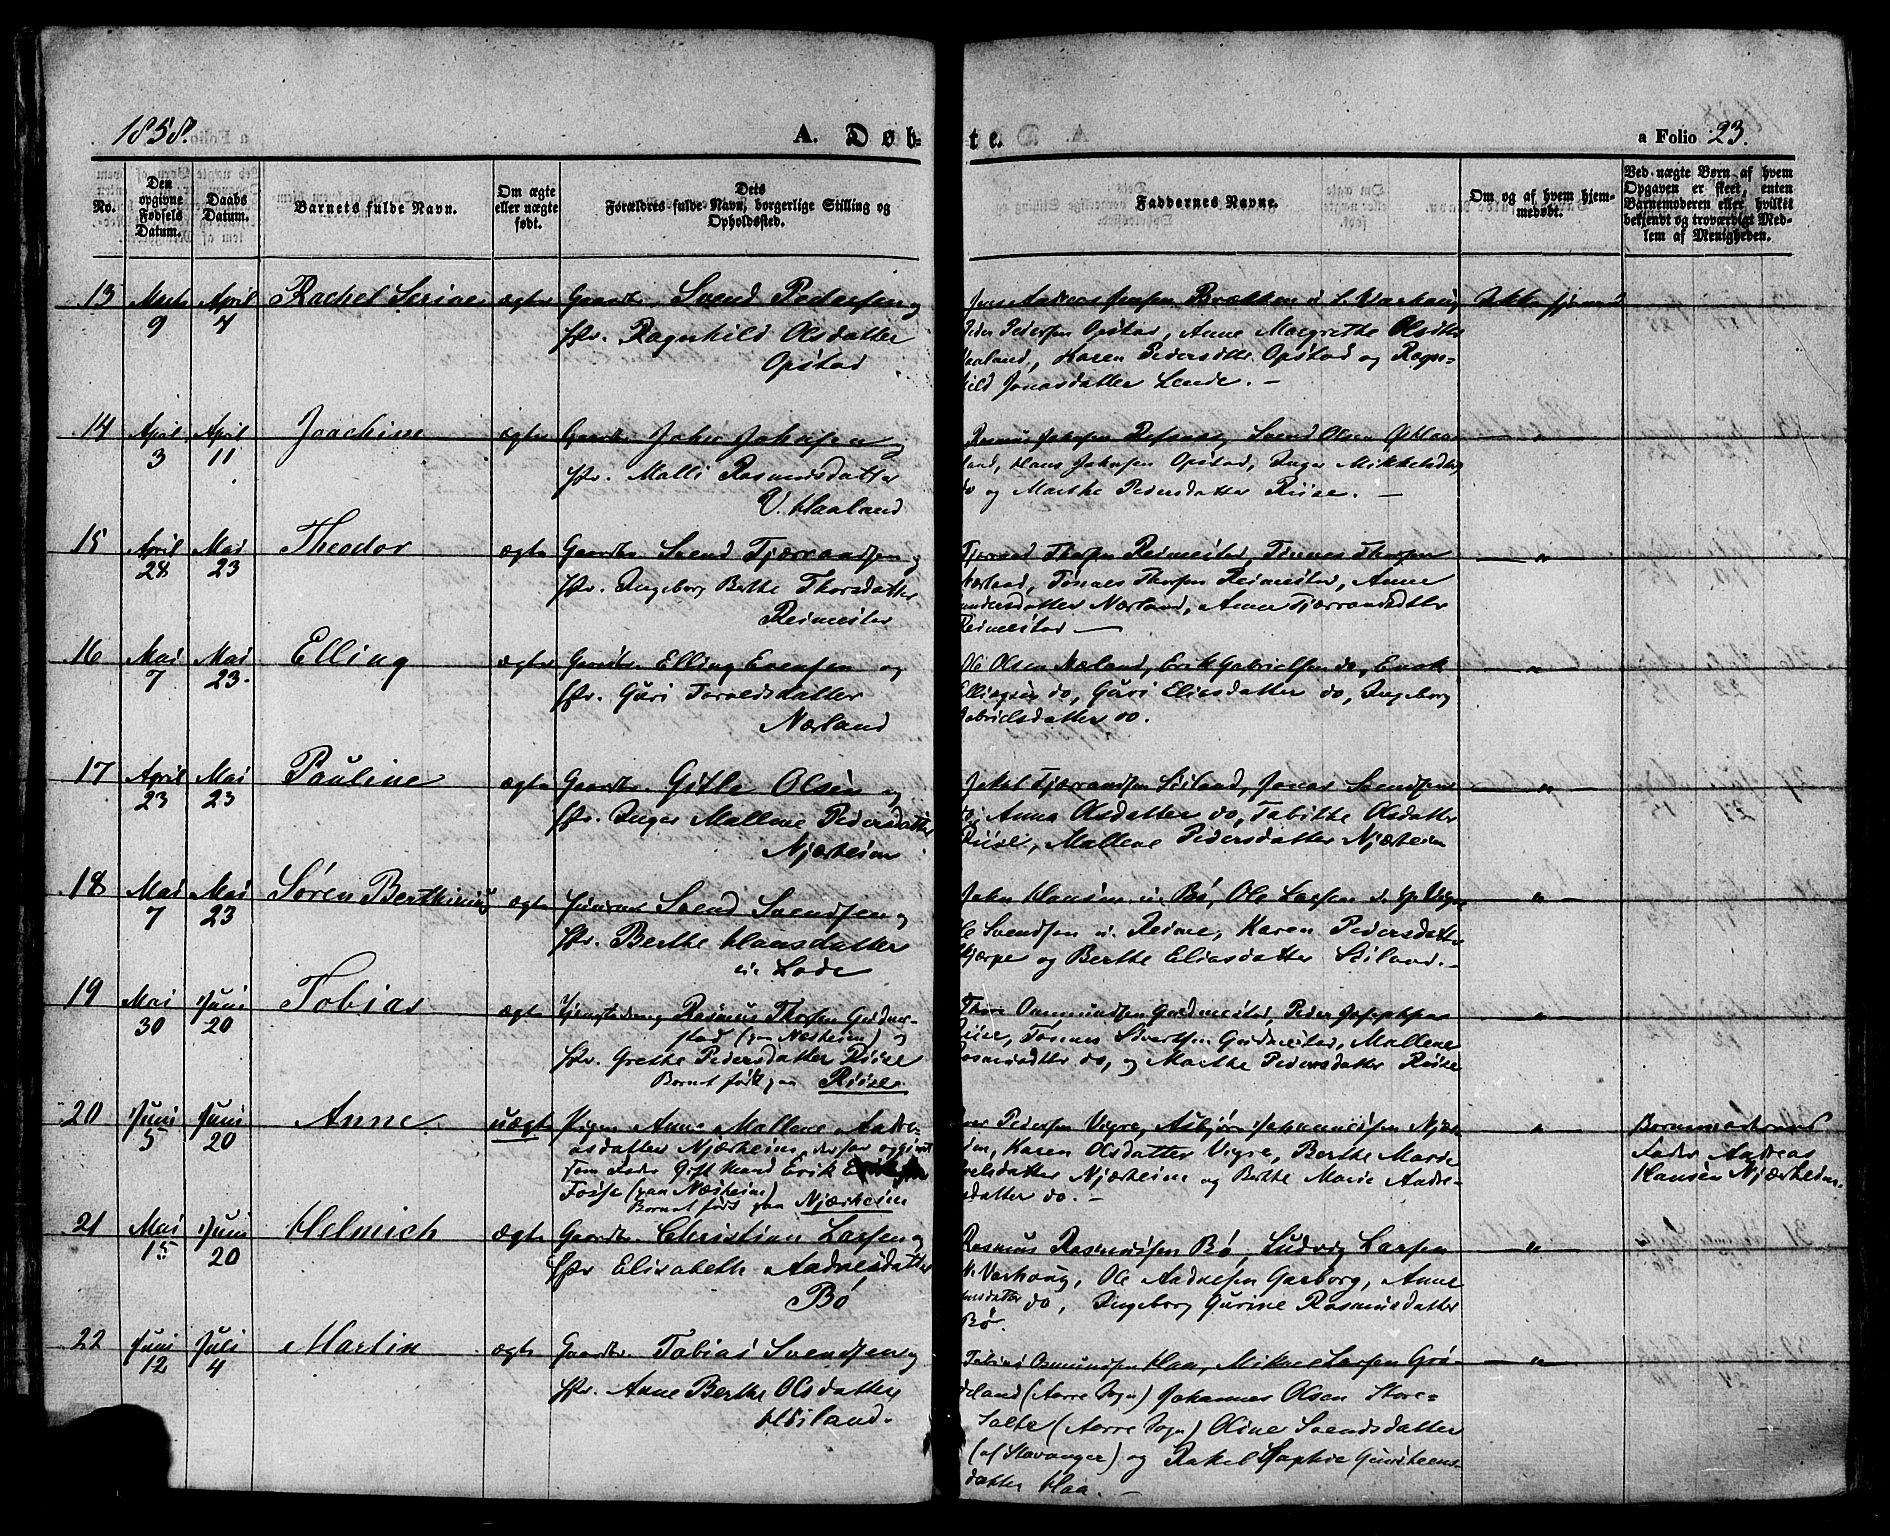 1858.
A. Døb-
te.
a Folio 23.
No.
Den opgivne Fødsels Datum.
Daabs Datum.
Barnets fulde Navn.
Om ægte eller uægte født.
Dets Forældres fulde Navn, borgerlige Stilling og Opholdssted.
Faddernes Navne.
Om og af hvem hjem-
medøbt.
Ved uægte Børn af hvem
Opgaven er skeet, enten
Barnemoderen eller hvilket
bekjendt og troværdigt Med-
lem af Menigheden.
13 Marts 9 April 7 Rachel Serine ægte Gaardbr. Svend Pedersen og
Hstr. Ragnhild Olsdatter
Opstad
Jens Andreas Jensen Brækken i L. Varhaug
Peder Pedersen Opstad, Anne Margrethe Olsdtr
Haaland, Karen Pedersdtr Opstad og Ragn-
hild Jonasdatter Lende. —
Ikke hjemmed.
14 April 3 April 11 Joachim ægte Gaardbr. John Johnsen og
Hstr. Malli Rasmusdatter
V. Haaland
Rasmus Johnsen Refsnes, Svend Olsen Haa-
land, Hans Johnsen Opstad, Inger Mikkelsdtr
do og Marthe Pedersdatter Riise. —
"
15 April 28 Mai 23 Theodor ægte Gaardbr. Svend Tjærrandsen og
Hstr. Ingeborg Berthe Thorsdatter
Reimestad
Tjærrand Thorsen Reimestad, Tønnes Thorsen
Nærland, Tønnes Thorsen Reimestad, Anne
Nærland, Anne Tjærrandsdtr
Reimestad —
"
16 Mai 7 Mai 23. Elling ægte Gaardbr. Elling Evensen og
Hstr. Guri Toroldsdatter
Nærland
Ole Olsen Nærland, Erik Gabrielsen do, Enok
Ellingsen do, Guri Eliesdatter do, Ingeborg
Gabrielsdatter do.
"
17 April 23 Mai 23 Pauline ægte Gaardbr. Gitle Olsen og
Hstr. Inger Mallene Pedersdatter
Njærheim
Jakob Tjærrandsen Søiland, Jonas Svendsen
do, Anna Olsdatter do, Tabithe Olsdatter
Riise, Mallene Pedersdatter Njærheim
"
18 Mai 7 Mai 23 Søren Berthinius ægte Svend Svendsen og
Hstr. Berthe Hansdatter
u. Lode
John Hansen u. Bø, Ole Larsen Vigre
Ole Svendsen u. Reime, Karen Pedersdatter
Skjærpe og Berthe Eliasdatter Søiland. —
"
19 Mai 30 Juni 20 Tobias ægte Tjenestedreng Rasmus Thorsen Gudmes-
stad (paa Næsheim) og
Hstr. Grethe Pedersdatter Riise
Barnet født paa Riise
Thore Ommundsen Gudmestad, Peder Josephsen
Riise, Tønnes Sivertsen Gudmestad, Mallene
Rasmusdatter do, og Marthe Pedersdatter Riise
"
20 Juni 5 Juni 20 Anne. uægte Pigen Anne Mallene Andre-
asdatter Njærheim, der har opgivet
som Fader Gift Mand Erik
Fosse (paa Næsheim)
Barnet født paa Njærheim
Iver Pedersen Vigre, Asbjørn Johannessen Njær-
heim, Karen Olsdatter Vigre, Berthe Marie
Njærheim og Berthe Marie Andre-
asdatter do. —
"
Barnemoderens
Fader Andreas
Hansen Njærheim.
21 Mai 15 Juni 20 Helmich ægte Gaardbr. Christian Larsen og
Hstr Elisabeth Aadnesdatter
Bø
Rasmus Rasmussen Bø, Ludvig Larsen
N. Varhaug, Ole Aadnesen Garborg, Anne
do, Ingeborg Gurine Rasmusdatter
Bø.
"
22 Juni 12 Juli 4 Martin ægte Gaardbr. Tobias Svendsen og
Hstr. Anne Berthe Olsdatter
Høiland.
Tobias Osmundsen Haa, Mikael Larsen Grø-
deland (Aarre Sogn) Johannes Olsen Store-
Salte (Aarre Sogn) Oline Svendsdatter
(af Stavanger) og Rakel Sophie
datter Haa. —
"